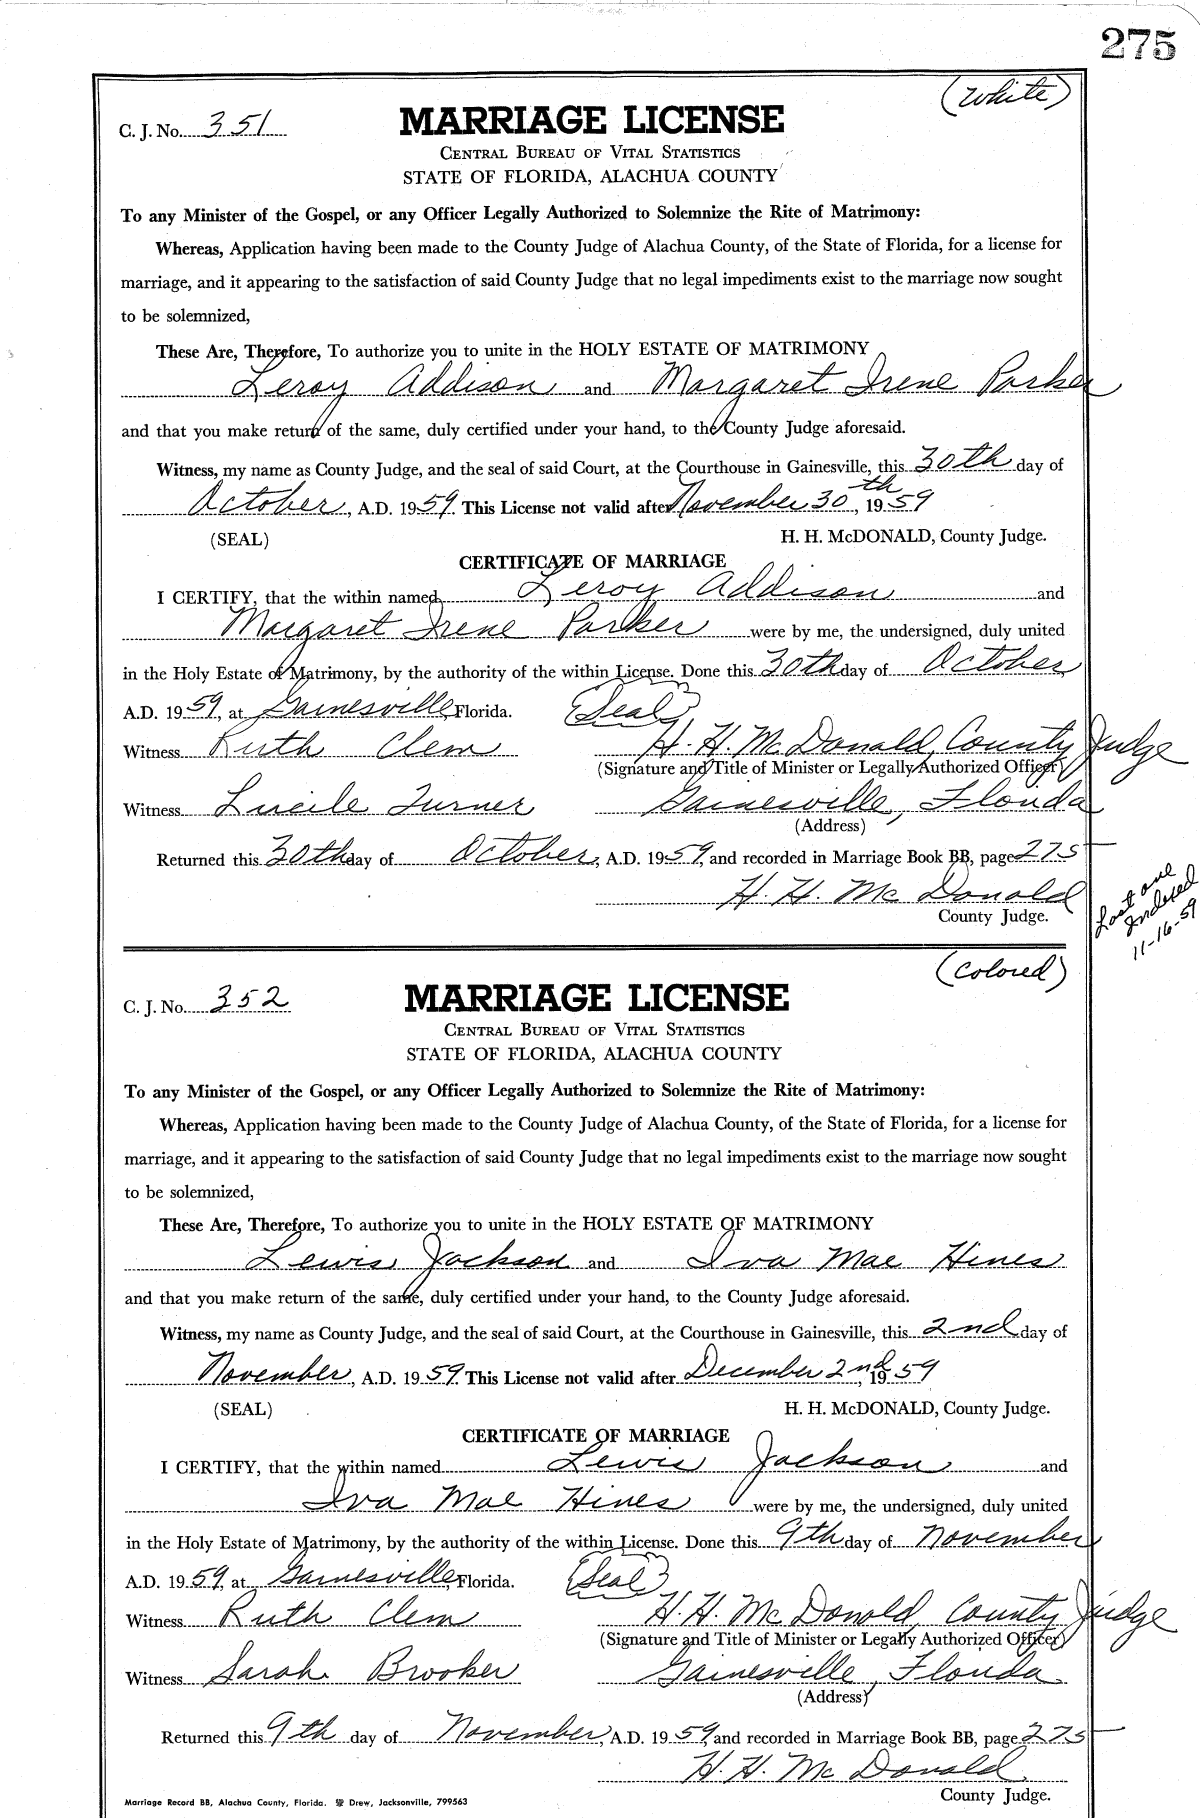 275
(White)
C. J. No. 351
MARRIAGE LICENSE
CENTRAL BUREAU OF VITAL STATISTICS
STATE OF FLORIDA, ALACHUA COUNTY
To any Minister of the Gospel, or any Officer Legally Authorized to Solemnize the Rite of Matrimony:
Whereas, Application having been made to the County Judge of Alachua County, of the State of Florida, for a license for
marriage, and it appearing to the satisfaction of said County Judge that no legal impediments exist to the marriage now sought
to be solemnized,
These Are, Therefore, To authorize you to unite in the HOLY ESTATE OF MATRIMONY
Leroy Addison and Margaret Irene Parker
and that you make return of the same, duly certified under your hand, to the County Judge aforesaid.
Witness, my name as County Judge, and the seal of said Court, at the Courthouse in Gainesville, this 30th day of
October, A.D. 1959. This License not valid after November 30th, 1959
(SEAL) H. H. McDONALD, County Judge.
CERTIFICATE OF MARRIAGE
I CERTIFY, that the within named Leroy Addison and
Margaret Irene Parker were by me, the undersigned, duly united
in the Holy Estate of Matrimony, by the authority of the within License. Done this 30th day of October,
A.D. 1959, at Gainesville, Florida. (Seal)
Witness Ruth Clem H. H. McDonald, County Judge
(Signature and Title of Minister or Legally Authorized Officer)
Witness Lucile Turner Gainesville, Florida
(Address)
Returned this 30th day of October, A.D. 1959, and recorded in Marriage Book BB, page 275
H. H. McDonald
County Judge.
Last one
Indexed
11-16-59
(Colored)
C. J. No. 352
MARRIAGE LICENSE
CENTRAL BUREAU OF VITAL STATISTICS
STATE OF FLORIDA, ALACHUA COUNTY
To any Minister of the Gospel, or any Officer Legally Authorized to Solemnize the Rite of Matrimony:
Whereas, Application having been made to the County Judge of Alachua County, of the State of Florida, for a license for
marriage, and it appearing to the satisfaction of said County Judge that no legal impediments exist to the marriage now sought
to be solemnized,
These Are, Therefore, To authorize you to unite in the HOLY ESTATE OF MATRIMONY
Lewis Jackson and Iva Mae Hines
and that you make return of the same, duly certified under your hand, to the County Judge aforesaid.
Witness, my name as County Judge, and the seal of said Court, at the Courthouse in Gainesville, this 2nd day of
November, A.D. 1959. This License not valid after December 2nd, 1959
(SEAL) H. H. McDONALD, County Judge.
CERTIFICATE OF MARRIAGE
I CERTIFY, that the within named Lewis Jackson and
Iva Mae Hines were by me, the undersigned, duly united
in the Holy Estate of Matrimony, by the authority of the within License. Done this 9th day of November
A.D. 1959, at Gainesville, Florida. (Seal)
Witness Ruth Clem H. H. McDonald, County Judge
(Signature and Title of Minister or Legally Authorized Officer)
Witness Sarah Brooker Gainesville, Florida
(Address)
Returned this 9th day of November, A.D. 1959, and recorded in Marriage Book BB, page 275
H. H. McDonald
County Judge.
Marriage Record BB, Alachua County, Florida. Drew, Jacksonville, 799563